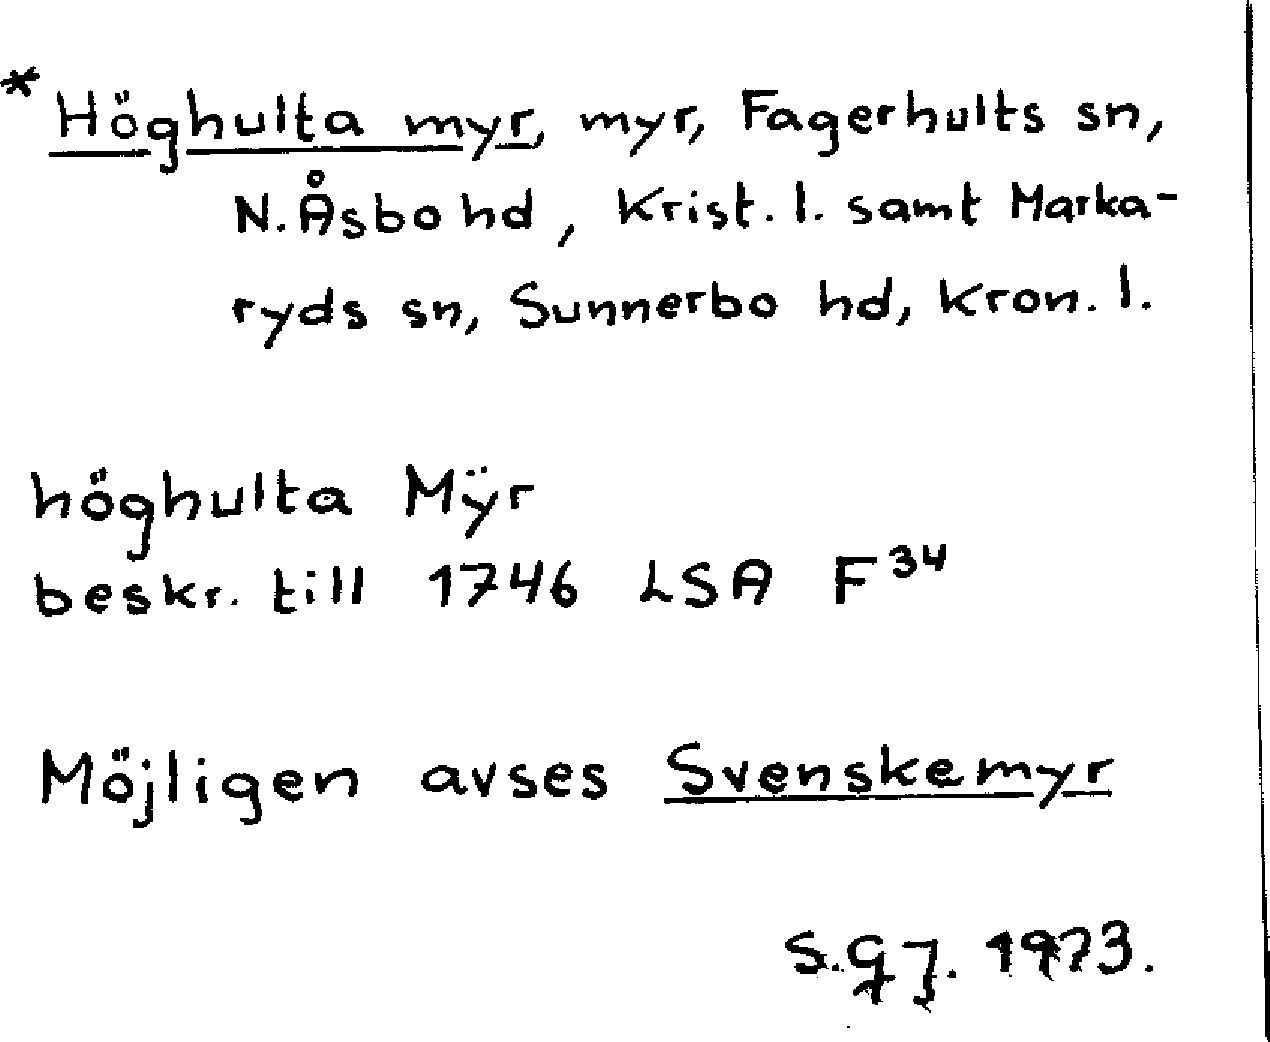 * Höghulta myr, myr, Fagerhults sn,
N. Åsbo hd, Krist. l. samt Marka-
ryds sn, Sunnerbo hd, Kron. l.
höghulta Mÿr
beskr. till 1746 LSA F³⁴
Möjligen avses Svenskemyr
S.G.J. 1973.